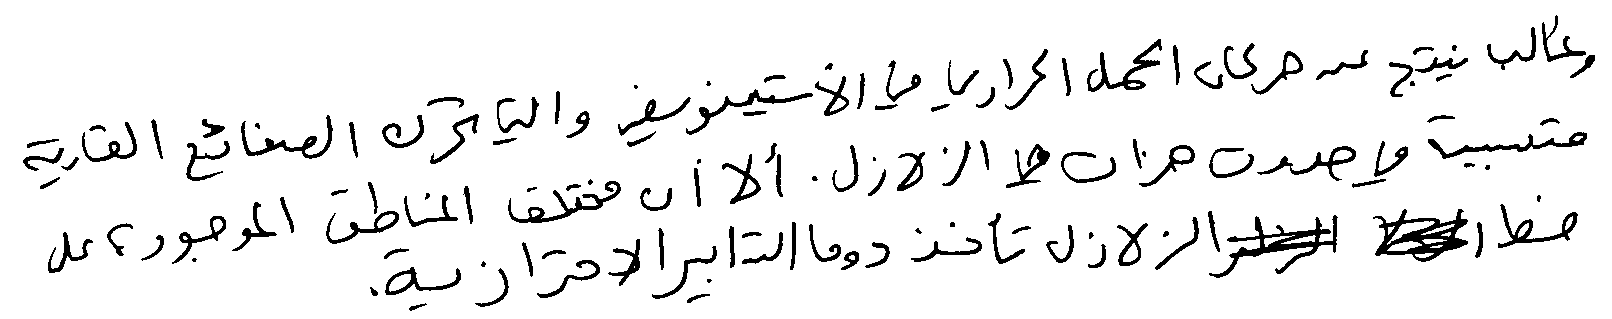 وغالب ينتج عن حركات الحمل الحراري في الأستينوسفير والتي تحرك الصفائح القارية
متسببة في حدوث هزات في الزلازل. ألا أن مختلف المناطق الموجودة على
خط الزلازل تأخذ دوما التدابير الاحترازية.